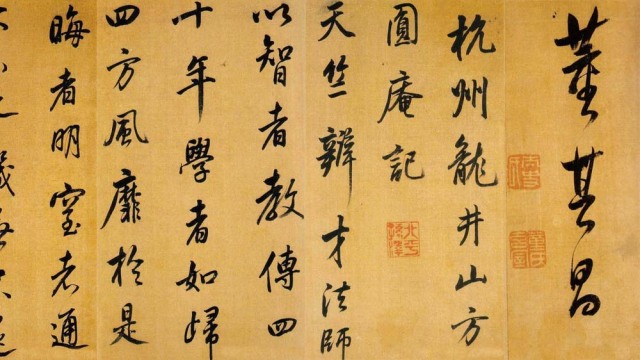 董其昌
杭州龍井山方
圓庵記
天竺辯才法師
以智者教傳四
十年學者如歸
四方風靡於是
晦者明窒者通